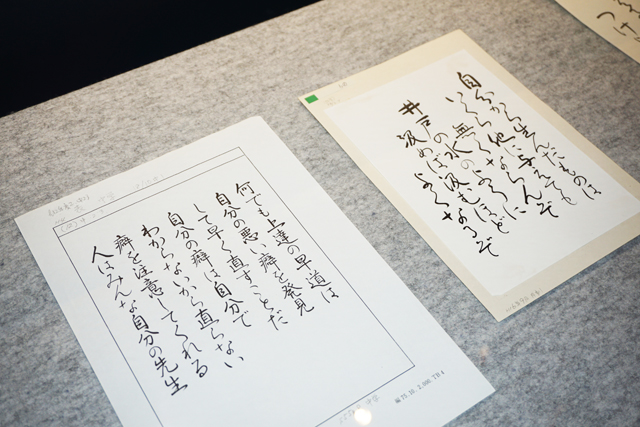 自分から生んだものは
いくら他に与えても
無くならんぞ
井戸の水の汲むほどに
汲めばよくなるぞ
何でも上達の早道は
自分の悪い癖を発見
して早く直すことだ
自分の癖は自分で
わからないから直らない
癖を注意してくれる
人はみんな自分の先生
75. 10. 2,000. TB 4